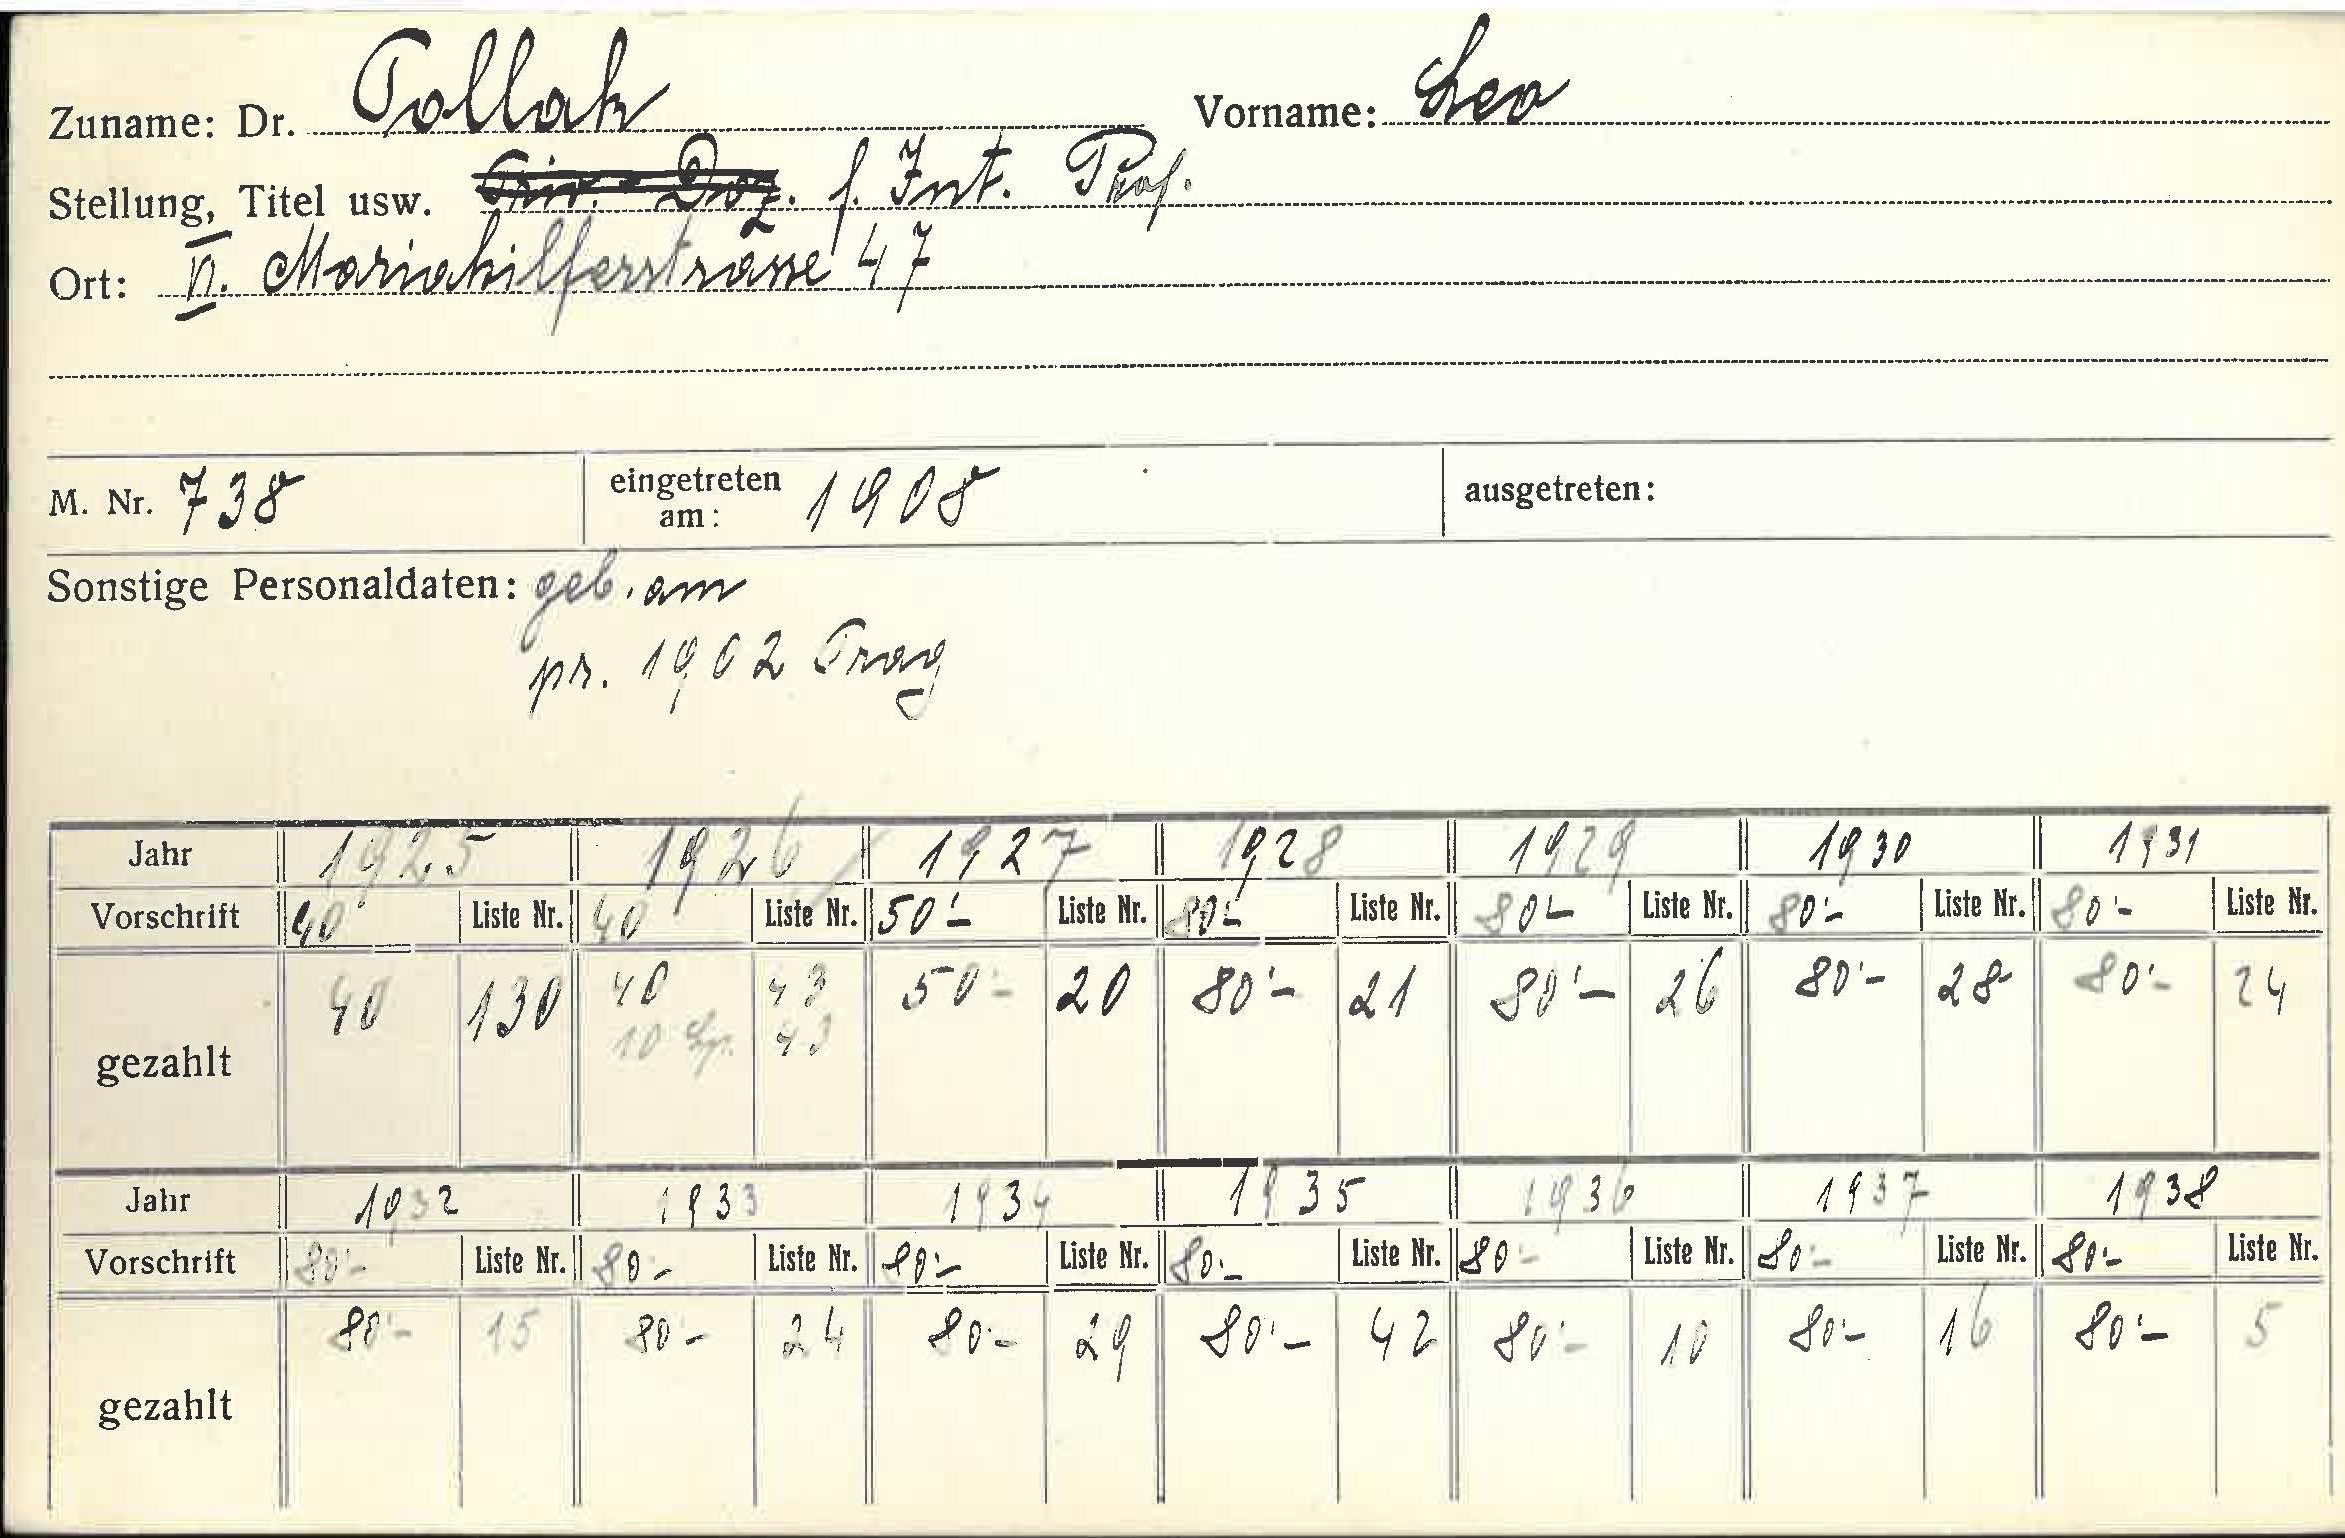 Zuname: Dr. Pollak Vorname: Leo
Stellung, Titel usw. Priv. Doz. f. Int. Prof.
Ort: VI. Mariahilferstrasse 47
M. Nr. 738 eingetreten am: 1908 ausgetreten:
Sonstige Personaldaten: geb. am
pr. 1902 Prag
Jahr 1925 1926 1927 1928 1929 1930 1931
Vorschrift 40 Liste Nr. 40 Liste Nr. 50'- Liste Nr. 80'- Liste Nr. 80'- Liste Nr. 80'- Liste Nr. 80'- Liste Nr.
gezahlt 40 130 40 43 50'- 20 80'- 21 80'- 26 80'- 28 80'- 24
10 43
Jahr 1932 1933 1934 1935 1936 1937 1938
Vorschrift 80'- Liste Nr. 80'- Liste Nr. 80'- Liste Nr. 80'- Liste Nr. 80'- Liste Nr. 80'- Liste Nr. 80'- Liste Nr.
gezahlt 80'- 15 80'- 24 80'- 29 80'- 42 80'- 10 80'- 16 80'- 5